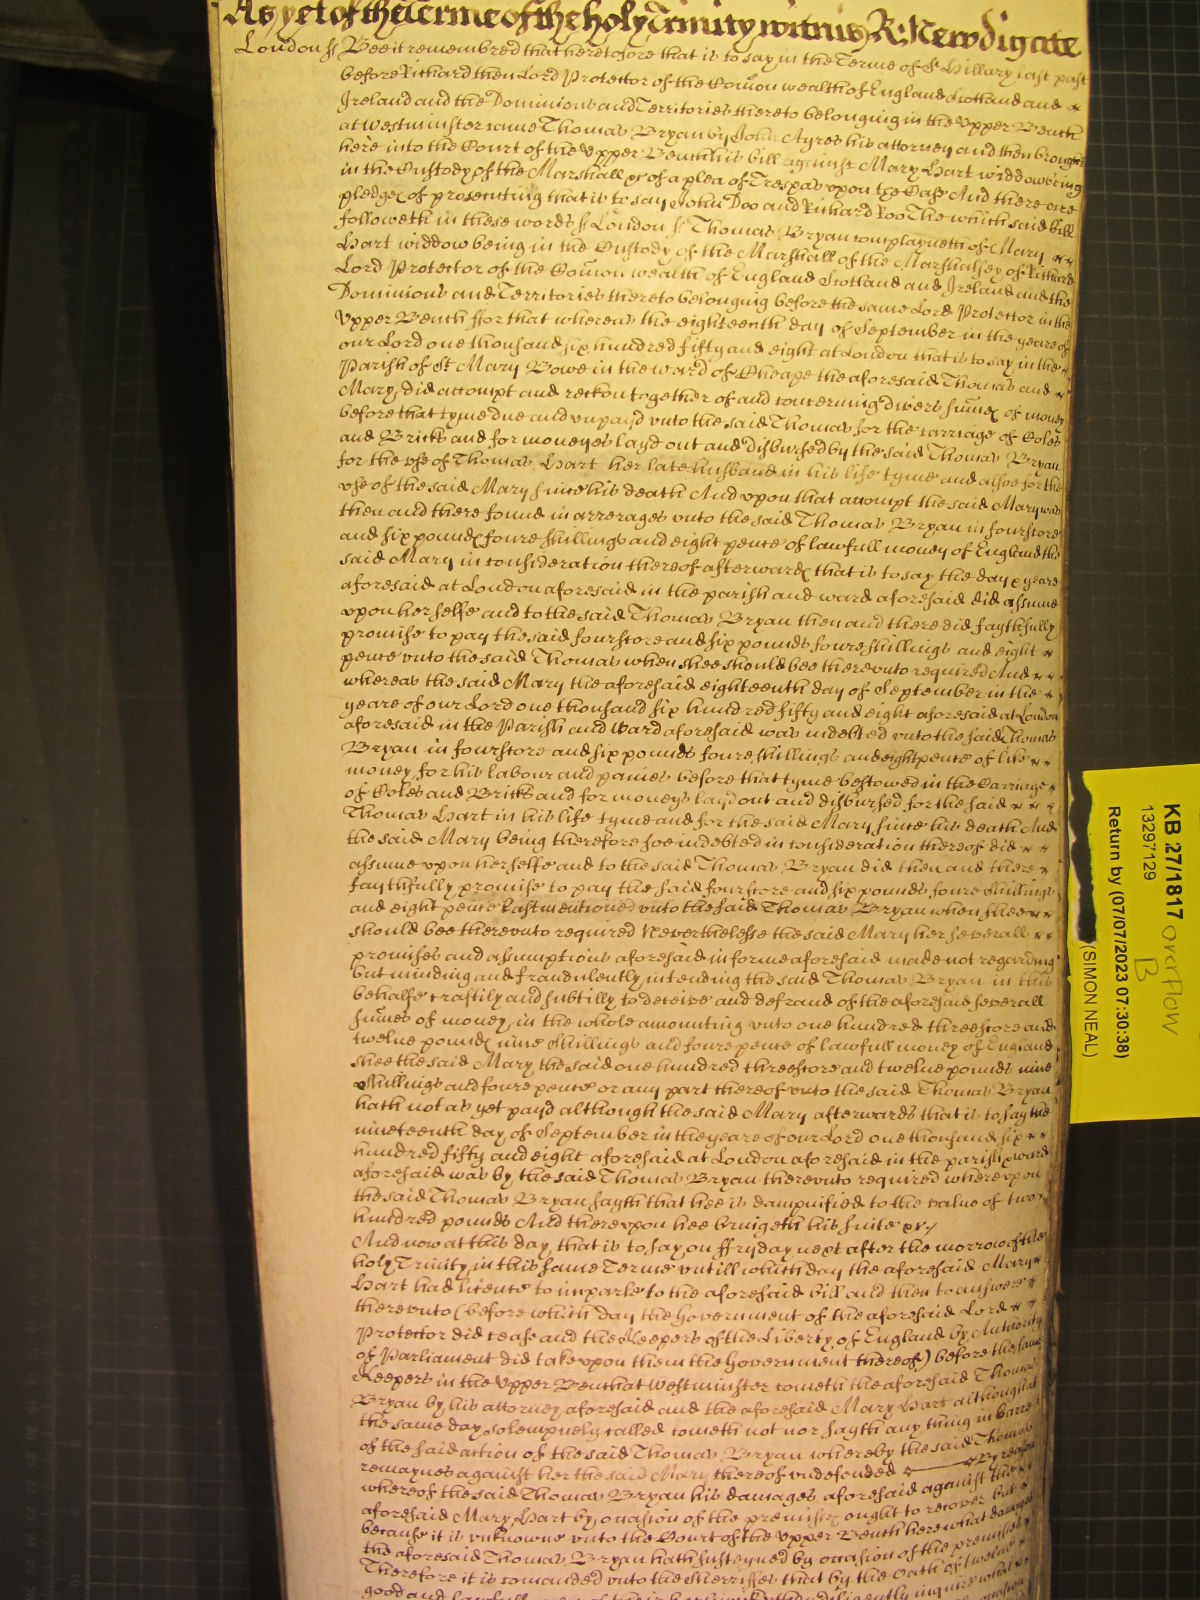 As yet of the Terme of the holy Trinity witnis R: Newdigate
London ss Bee it remembred that heretofore that is to say in the Terme of St Hillary last past
before Richard then Lord Protector of the Comon wealth of England Scotland and
Ireland and the Dominions and Territories thereto belonging in the Upper Bench
at Westminster came Thomas Bryan by John Ayres his attorney and then brought
here into the Court of the Upper Bench his bill against Mary Hart widdow being
in the Custody of the Marshall &c of a plea of Trespas upon the Case And there are
pledges of prosecuting that is to say John Doo and Richard Roo The which said bill
followeth in these words ss London ss Thomas Bryan complayneth of Mary
Hart widdow being in the Custody of the Marshall of the Marshalsey of Richard
Lord Protector of the Comon wealth of England Scotland and Ireland and the
Dominions and Territories thereto belonging before the same Lord Protector in the
Upper Bench ffor that whereas the eighteenth day of September in the yeare of
our Lord one thousand six hundred fifty and eight at London that is to say in the
Parish of St Mary Bowe in the ward of Cheape the aforesaid Thomas and
Mary did accompt and reckon together of and concerning divers sumes of money
before that tyme due and unpayd unto the said Thomas for the carriage of Coles
and Bricks and for moneyes layd out and disbursed by the said Thomas Bryan
for the use of Thomas Hart her late husband in his life tyme and alsoe for the
use of the said Mary since his death And upon that accompt the said Mary was
then and there found in arrerages unto the said Thomas Bryan in fourscore
and six pounds foure shillings and eight pence of lawfull money of England the
said Mary in consideration thereof afterwards that is to say the day & yeare
aforesaid at London aforesaid in the parish and ward aforesaid did assume
upon her selfe and to the said Thomas Bryan then and there did faythfully
promise to pay the said fourscore and six pounds foure shillings and eight
pence unto the said Thomas when shee should bee thereunto required And
whereas the said Mary the aforesaid eighteenth day of September in the
yeare of our Lord one thousand six hundred fifty and eight aforesaid at London
aforesaid in the Parish and Ward aforesaid was indebted unto the said Thomas
Bryan in fourscore and six pounds foure shillings and eight pence of like
money for his labour and paines before that tyme bestowed in the Carriage
of Coles and Bricks and for moneys layd out and disbursed for the said
Thomas Hart in his life tyme and for the said Mary since his death And
the said Mary being therefore soe indebted in consideration thereof did
assume upon her selfe and to the said Thomas Bryan did then and there
faythfully promise to pay the said fourscore and six pounds foure shillings
and eight pence last mentioned unto the said Thomas Bryan when shee
should bee thereunto required Neverthelesse the said Mary her severall
promises and assumptions aforesaid in forme aforesaid made not regarding
but minding and fraudulently intending the said Thomas Bryan in this
behalfe craftily and subtilly to deceive and defraud of the aforesaid severall
sumes of money in the whole amounting unto one hundred threescore and
twelve pounds nine shillings and foure pence of lawfull money of England
shee the said Mary the said one hundred threescore and twelve pounds nine
shillings and foure pence or any part thereof unto the said Thomas Bryan
hath not as yet payd although the said Mary afterwards that is to say the
nineteenth day of September in the yeare of our Lord one thousand six
hundred fifty and eight aforesaid at London aforesaid in the parish & ward
aforesaid was by the said Thomas Bryan thereunto required whereupon
the said Thomas Bryan sayth that hee is dampnified to the value of two
hundred pounds And thereupon hee bringeth his suite &c
And now at this day that is to say on ffryday next after the morrow of the
holy Trinity in this same Terme untill which day the aforesaid Mary
Hart had licence to imparle to the aforesaid bill and then to answere
thereunto (before which day the Government of the aforesaid Lord
Protector did cease and the Keepers of the Liberty of England by Authority
of Parliament did take upon them the Government thereof) before the same
Keepers in the Upper Bench at Westminster cometh the aforesaid Thomas
Bryan by his attorney aforesaid and the aforesaid Mary Hart although at
the same day solempnely called cometh not nor sayth any thing in barre
of the said action of the said Thomas Bryan whereby the said Thomas
remaynes against her the said Mary thereof undefended By reason
whereof the said Thomas Bryan his damages aforesaid against the
aforesaid Mary Hart by occasion of the premises ought to recover but
because it is unknowne unto the Court of the Upper Bench here what damages
the aforesaid Thomas Bryan hath susteyned by occasion of the premises
Therefore it is comanded unto the Sherriffes that by the oath of twelve
good and lawfull men of their diligently inquire what
KB 27/1817 overflow
B
13297129
(SIMON NEAL)
Return by (07/07/2023 07:30:38)